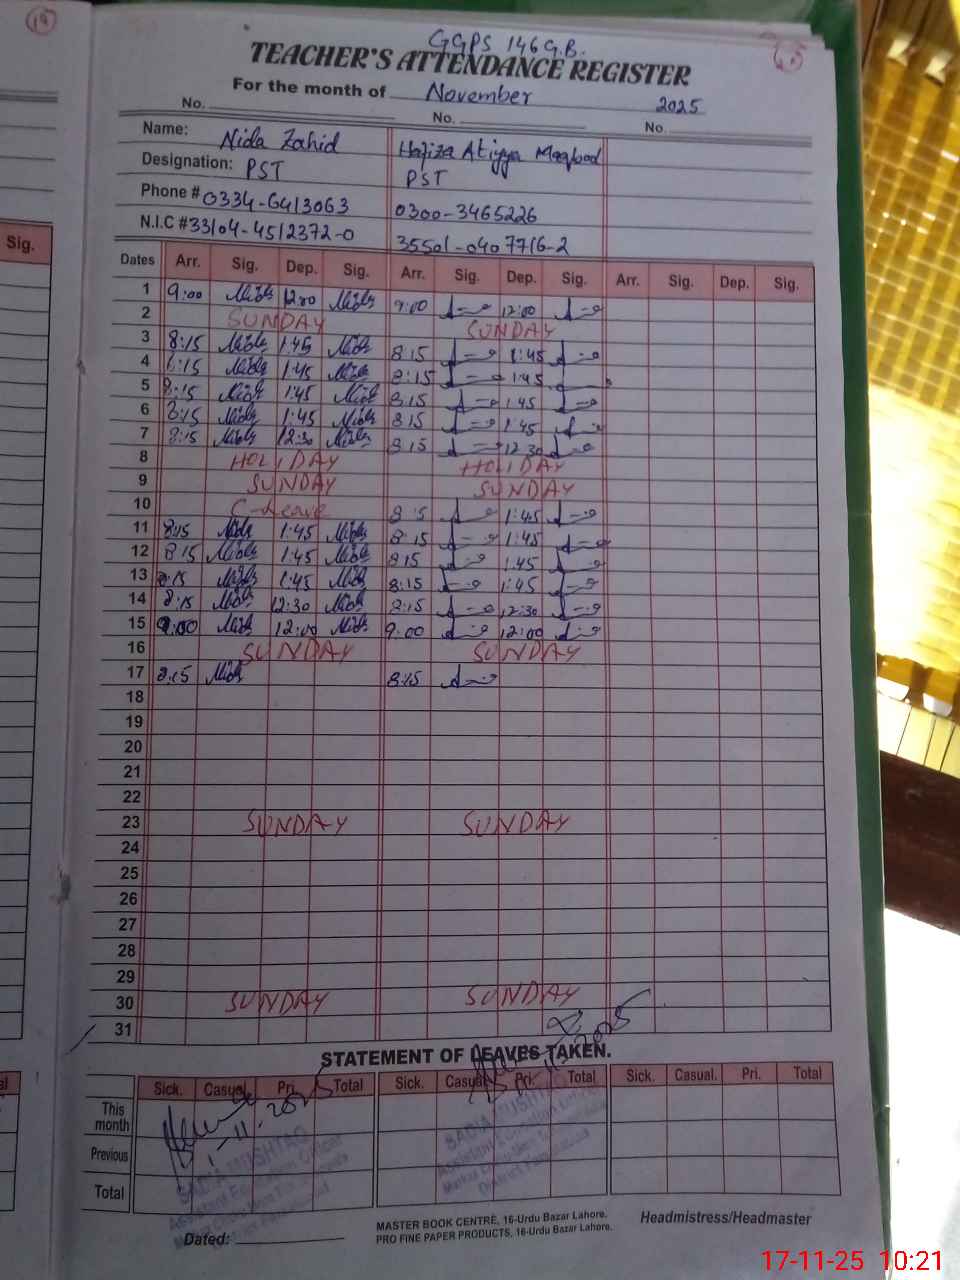 19
GGPS 146 G.B.
TEACHER'S ATTENDANCE REGISTER
For the month of November 2025
No. No. No.
Name: Nida Zahid Hafiza Atiyya Maqbool
Designation: PST PST
Phone # 0334-6413063 0300-3465226
N.I.C # 33104-4512372-0 35501-0407716-2
Sig. Dates Arr. Sig. Dep. Sig. Arr. Sig. Dep. Sig. Arr. Sig. Dep. Sig.
1 9:00 Nida 12:00 Nida 9:00 12:00
2 SUNDAY SUNDAY
3 8:15 Nida 1:45 Nida 8:15 1:45
4 8:15 Nida 1:45 Nida 8:15 1:45
5 8:15 Nida 1:45 Nida 8:15 1:45
6 8:15 Nida 1:45 Nida 8:15 1:45
7 8:15 Nida 12:30 Nida 8:15 12:30
8 HOLIDAY HOLIDAY
9 SUNDAY SUNDAY
10 C-Leave 8:15 1:45
11 8:15 Nida 1:45 Nida 8:15 1:45
12 8:15 Nida 1:45 Nida 8:15 1:45
13 8:15 Nida 1:45 Nida 8:15 1:45
14 8:15 Nida 12:30 Nida 8:15 12:30
15 9:00 Nida 12:00 Nida 9:00 12:00
16 SUNDAY SUNDAY
17 8:15 Nida 8:15
18
19
20
21
22
23 SUNDAY SUNDAY
24
25
26
27
28
29
30 SUNDAY SUNDAY
31
STATEMENT OF LEAVES TAKEN.
Sick. Casual. Pri. Total Sick. Casual. Pri. Total Sick. Casual. Pri. Total
This month
Previous
Total
SADIA MUSHTAQ SADIA MUSHTAQ
Assistant Education Officer Assistant Education Officer
Dated:
MASTER BOOK CENTRE, 16-Urdu Bazar Lahore.
PRO FINE PAPER PRODUCTS, 16-Urdu Bazar Lahore.
Headmistress/Headmaster
17-11-25 10:21